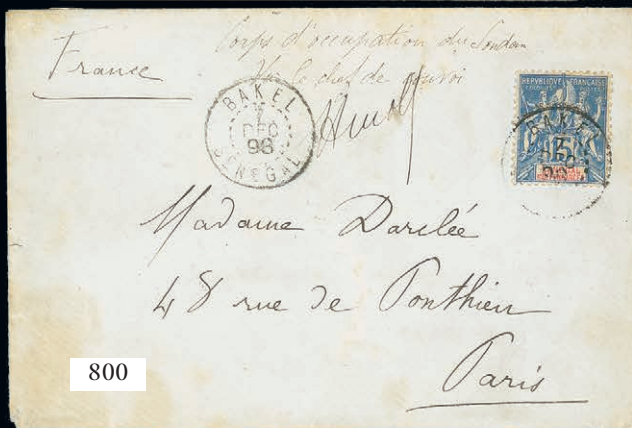 Corps d'occupation du Soudan
France
Vu le chef de convoi
BAKEL
7
DEC
96
SENEGAL
REPUBLIQUE FRANCAISE
BAKEL
7
DEC
15
Madame Darclée
48 rue de Ponthieu
Paris
800